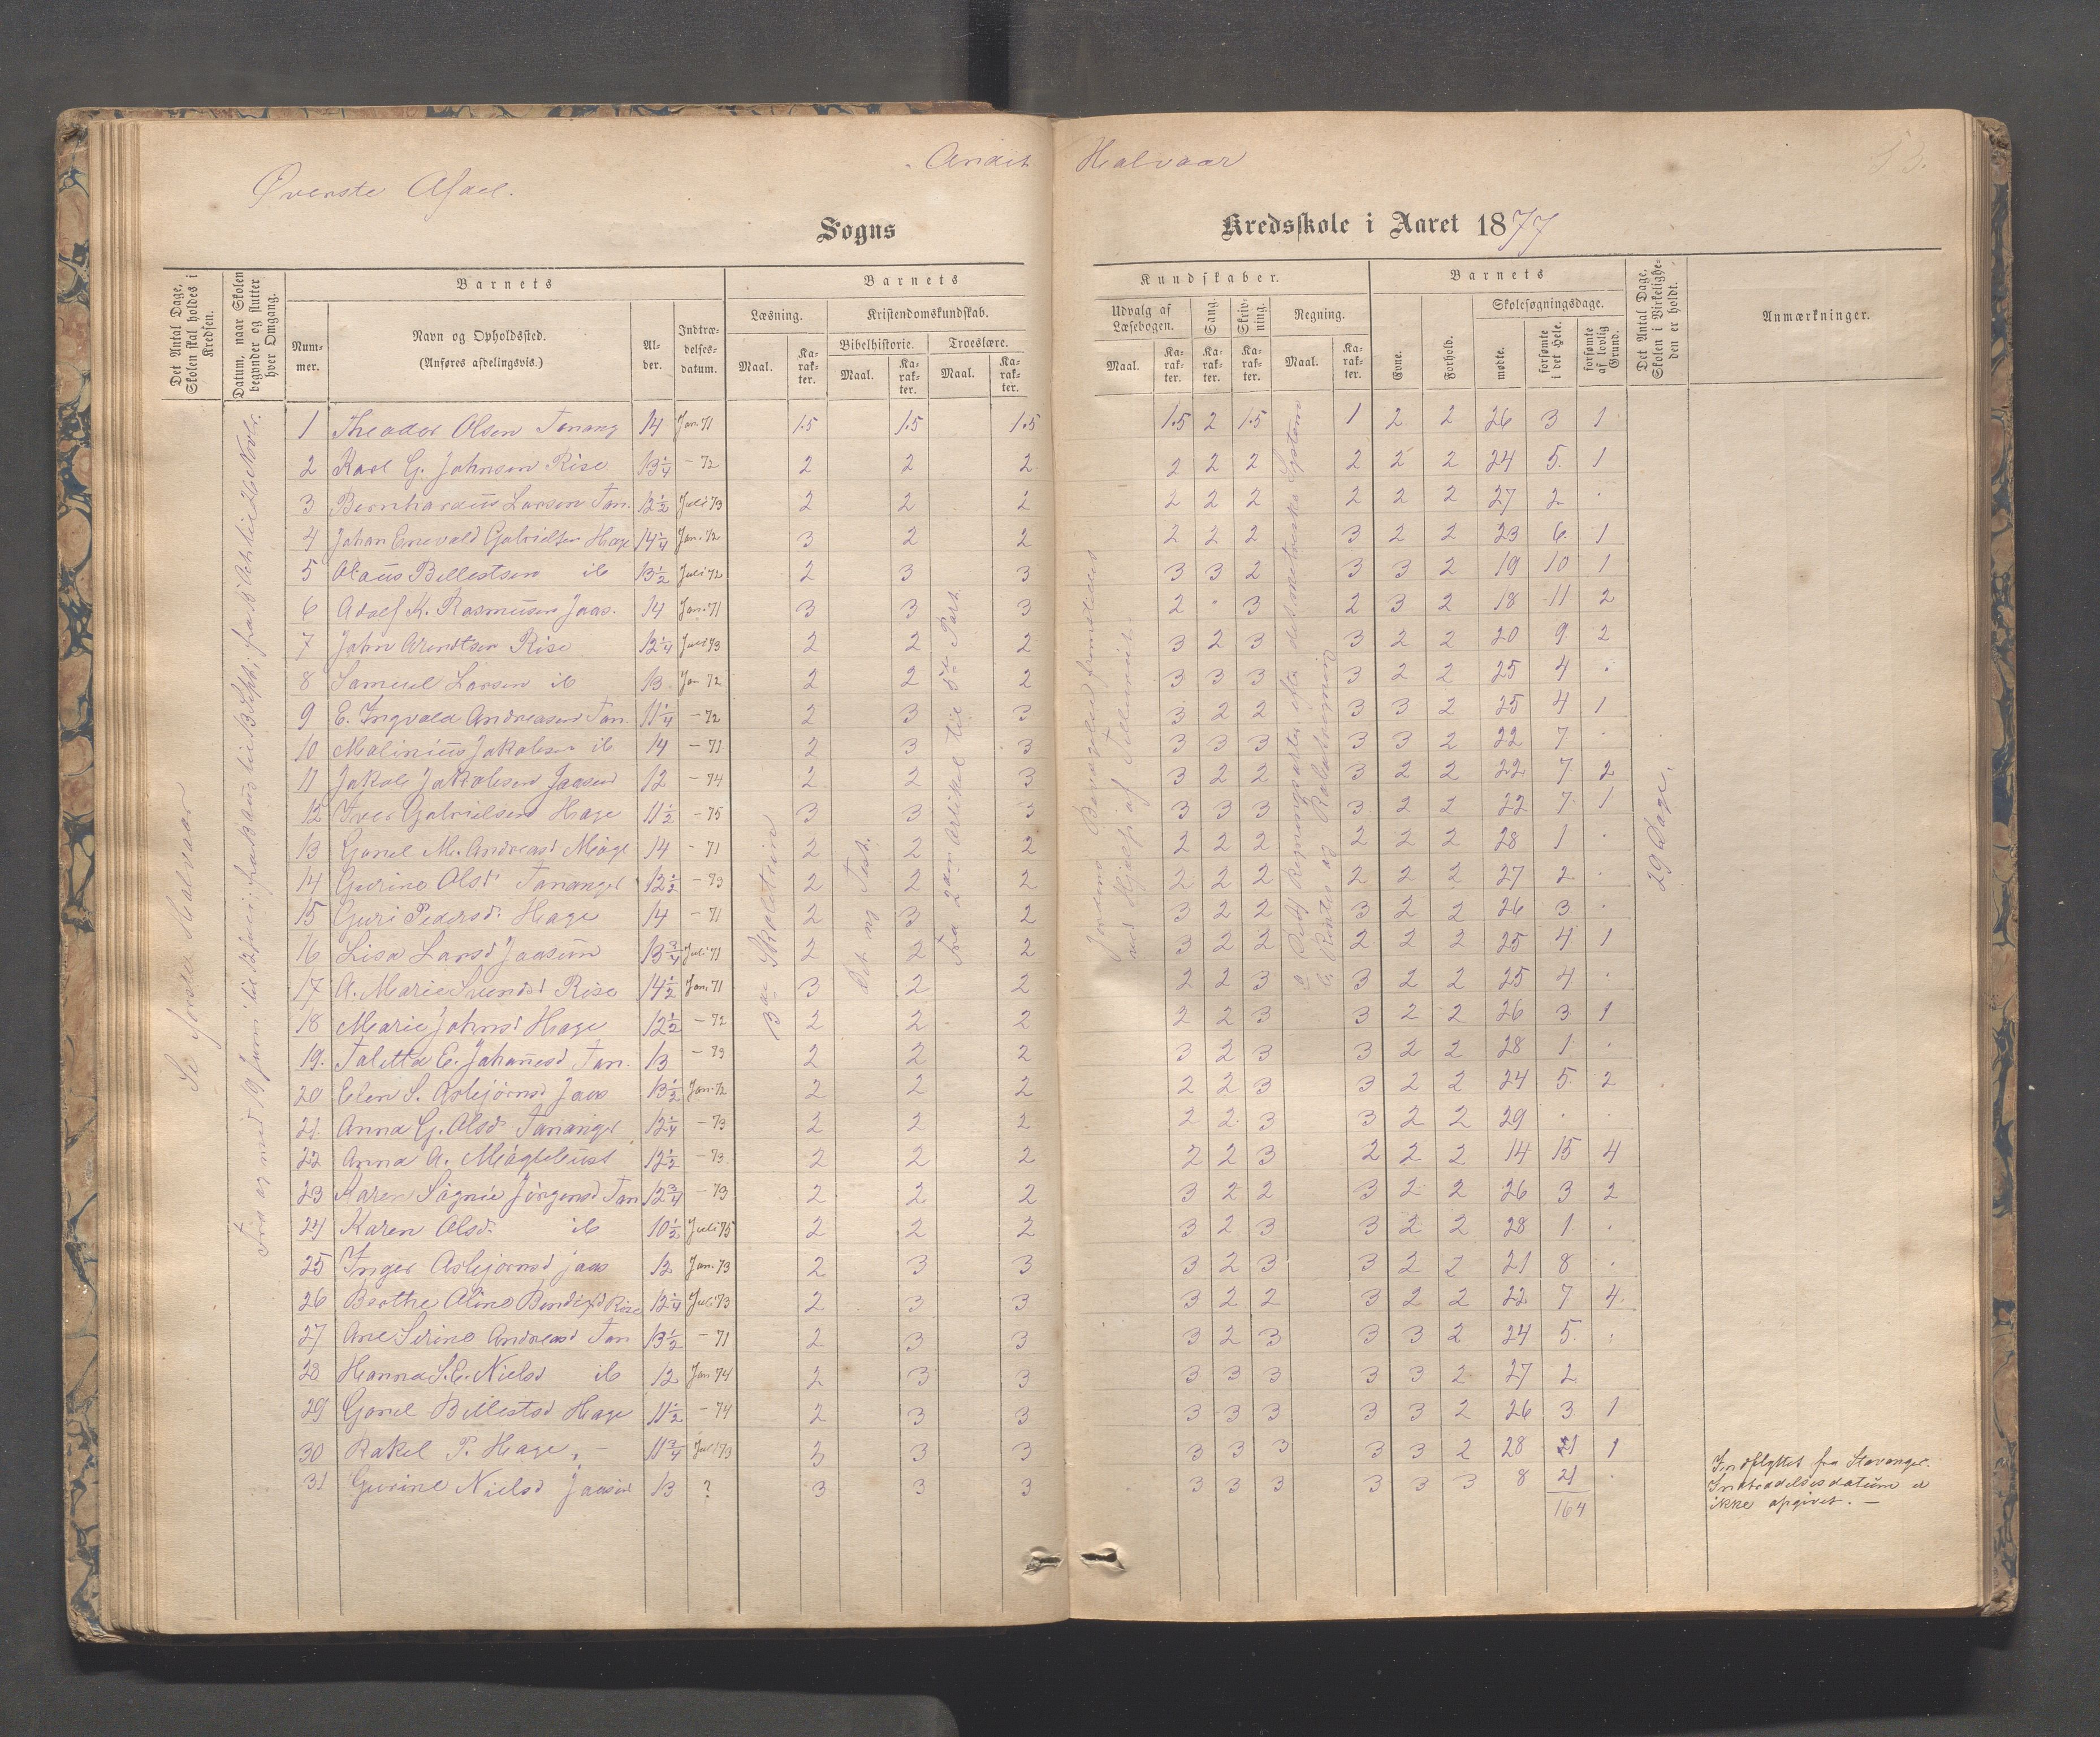 Øverste Afdel.
Andet Halvaar
Sogns Kredsskole i Aaret 1877
Det Antal Dage, Skolen skal holdes i Kredsen.
Datum, naar Skolen begynder og slutter hver Omgang.
Barnets
Num-mer.
Navn og Opholdssted.
(Anføres afdelingsvis.)
Al-der.
Indtræ-delses-datum.
Barnets
Læsning.
Kristendomskundskab.
Bibelhistorie.
Troeslære.
Maal.
Ka-rak-ter.
Maal.
Ka-rak-ter.
Maal.
Ka-rak-ter.
Kundskaber.
Udvalg af Læsebogen.
Sang.
Skriv-ning.
Regning.
Maal.
Ka-rak-ter.
Ka-rak-ter.
Ka-rak-ter.
Maal.
Ka-rak-ter.
Barnets
Evne.
Forhold.
Skolesøgningsdage.
mødte.
forsømte i det Hele.
forsømte af lovlig Grund.
Det Antal Dage, Skolen i Virkelighe-den er holdt.
Anmærkninger.
Se første Halvaar
29 Dage.
1 Theodor Olsen Tanang 14 Jan. 71 1.5 1.5 1.5 1.5 2 1.5 1 2 2 26 3 1
2 Karl G. Johnsen Rise 13 1/4 - 72 2 2 2 2 2 2 2 2 2 24 5 1
3 Bernhardus Larsen Tan. 12 1/2 Juli 73 2 2 2 2 2 2 2 2 2 27 2 .
4 Johan Enevald Gabrielsen Hage 14 1/4 Jan. 72 3 2 2 2 2 2 3 2 2 23 6 1
5 Olaus Bellestsen ib 13 1/2 Juli 72 2 3 3 3 3 2 3 3 2 19 10 1
6 Adolf K. Rasmusen Jaas. 14 Jan. 71 3 3 3 2 . 3 2 3 2 18 11 2
7 John Arentsen Rise 12 1/4 Juli 73 2 2 2 3 2 3 3 2 2 20 9 2
8 Samuel Larsen ib 13 Jan 72 2 2 2 3 3 3 3 2 2 25 4 .
9 E. Ingvald Andreasen Tan. 11 1/4 - 72 2 3 3 3 2 2 3 3 2 25 4 1
10 Malinius Jakobsen ib 14 - 71 2 3 3 3 3 3 3 3 2 22 7 .
11 Jakob Jakobsen Jaasund 12 - 74 2 2 3 3 2 2 3 2 2 22 7 2
12 Iver Gabrielsen Hage 11 1/2 - 75 3 3 3 3 3 3 3 2 2 22 7 1
13 Gunel M. Andreasd Meage 14 - 71 2 2 2 2 2 2 2 2 2 28 1 .
14 Gurine Olsd. Tananger 12 1/2 - 73 2 2 2 2 2 2 2 2 2 27 2 .
15 Guri Pedersd. Hage 14 - 71 2 3 2 3 2 2 3 2 2 26 3 .
16 Lisa Larsd Jaasun 13 3/4 Juli 71 2 2 2 3 2 2 2 2 2 25 4 1
17 A. Marie Svendsd Rise 14 1/2 Jan. 71 3 2 2 2 2 3 3 2 2 25 4 .
18 Marie Johnsd Hage 12 1/2 - 72 2 2 2 2 2 3 3 2 2 26 3 1
19. Taletta E. Johanesd Tan. 13 - 73 2 2 2 3 2 3 3 2 2 28 1 .
20 Elen S. Asbjørnsd Jaas 13 1/2 Jan. 72 2 2 2 2 2 3 3 2 2 24 5 2
21. Anna G. Olsd. Tananger 12 1/4 - 73 2 2 2 2 2 3 3 2 2 29 . .
22 Anna A. Meglebust 12 1/2 - 73 2 2 2 2 2 3 2 2 2 14 15 4
23 Karen Signe Jørgensd Tan 12 3/4 - 73 2 2 2 3 2 2 3 2 2 26 3 2
24 Karen Olsd. ib 10 1/2 Juli 75 2 2 2 3 2 3 3 2 2 28 1 .
25 Inger Asbjørnsd jaas 12 Jan. 73 2 3 3 3 2 3 3 2 2 21 8 .
26 Berthe Oline Bendixd Rise 12 1/4 Juli 73 2 3 3 3 2 2 3 2 2 22 7 4
27 Ane Serine Andreasd Tan 13 1/2 - 71 2 3 3 3 2 3 3 3 2 24 5 .
28 Hanna S. E. Nielsd ib 12 Jan 74 2 3 3 3 3 3 3 3 2 27 2
29 Gunel Bellestsd Hage 11 1/2 - 74 2 3 3 3 3 3 3 3 2 26 3 1
30 Rakel P. Hage 11 3/4 Juli 73 3 3 3 3 3 3 3 3 2 28 1 1
31 Gurine Nielsd Jaasund 13 ? 3 3 3 3 3 3 3 3 3 8 21 .
164
Fra og med 19 Juni til
3die Skoletrin
Det ny Test.
Fra 2den Artikel til 5te Part.
med Hjælp af
det metriske System
Rentes og Rabatregning
Indflyttet fra Stavanger.
Indtrædelsesdatum er
ikke opgivet. —